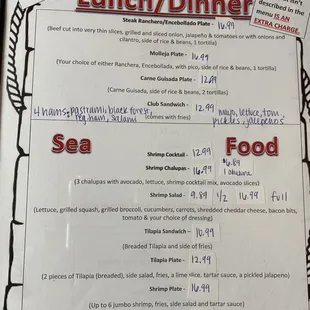 Lunch/Dinner
described in the
menu IS AN
EXTRA CHARGE.
Steak Ranchera/Encebollado Plate - 16.99
(Beef cut into very thin slices, grilled and sliced onion, jalapeño & tomatoes or with onions and
cilantro, side of rice & beans, 1 tortilla)
Molleja Plate - 16.99
(Your choice of either Ranchera, Encebollada, with pico, side of rice & beans, 1 tortilla)
Carne Guisada Plate - 12.99
(Carne Guisada, side of rice & beans, 2 tortillas)
Club Sandwich - 12.99
4 hams: pastrami, black forest, reg ham, salami
(comes with fries)
mayo, lettuce, tom, pickles, jalepenos
Sea Food
Shrimp Cocktail - 12.99
Shrimp Chalupas - 16.99
$6.89
1 chalupa
(3 chalupas with avocado, lettuce, shrimp cocktail mix, avocado slices)
Shrimp Salad - 9.89 1/2 16.99 full
(Lettuce, grilled squash, grilled broccoli, cucumbers, carrots, shredded cheddar cheese, bacon bits,
tomato & your choice of dressing)
Tilapia Sandwich - 10.99
(Breaded Tilapia and side of fries)
Tilapia Plate - 12.99
(2 pieces of Tilapia (breaded), side salad, fries, a lime slice, tartar sauce, a pickled jalapeno)
Shrimp Plate - 16.99
(Up to 6 jumbo shrimp, fries, side salad and tartar sauce)